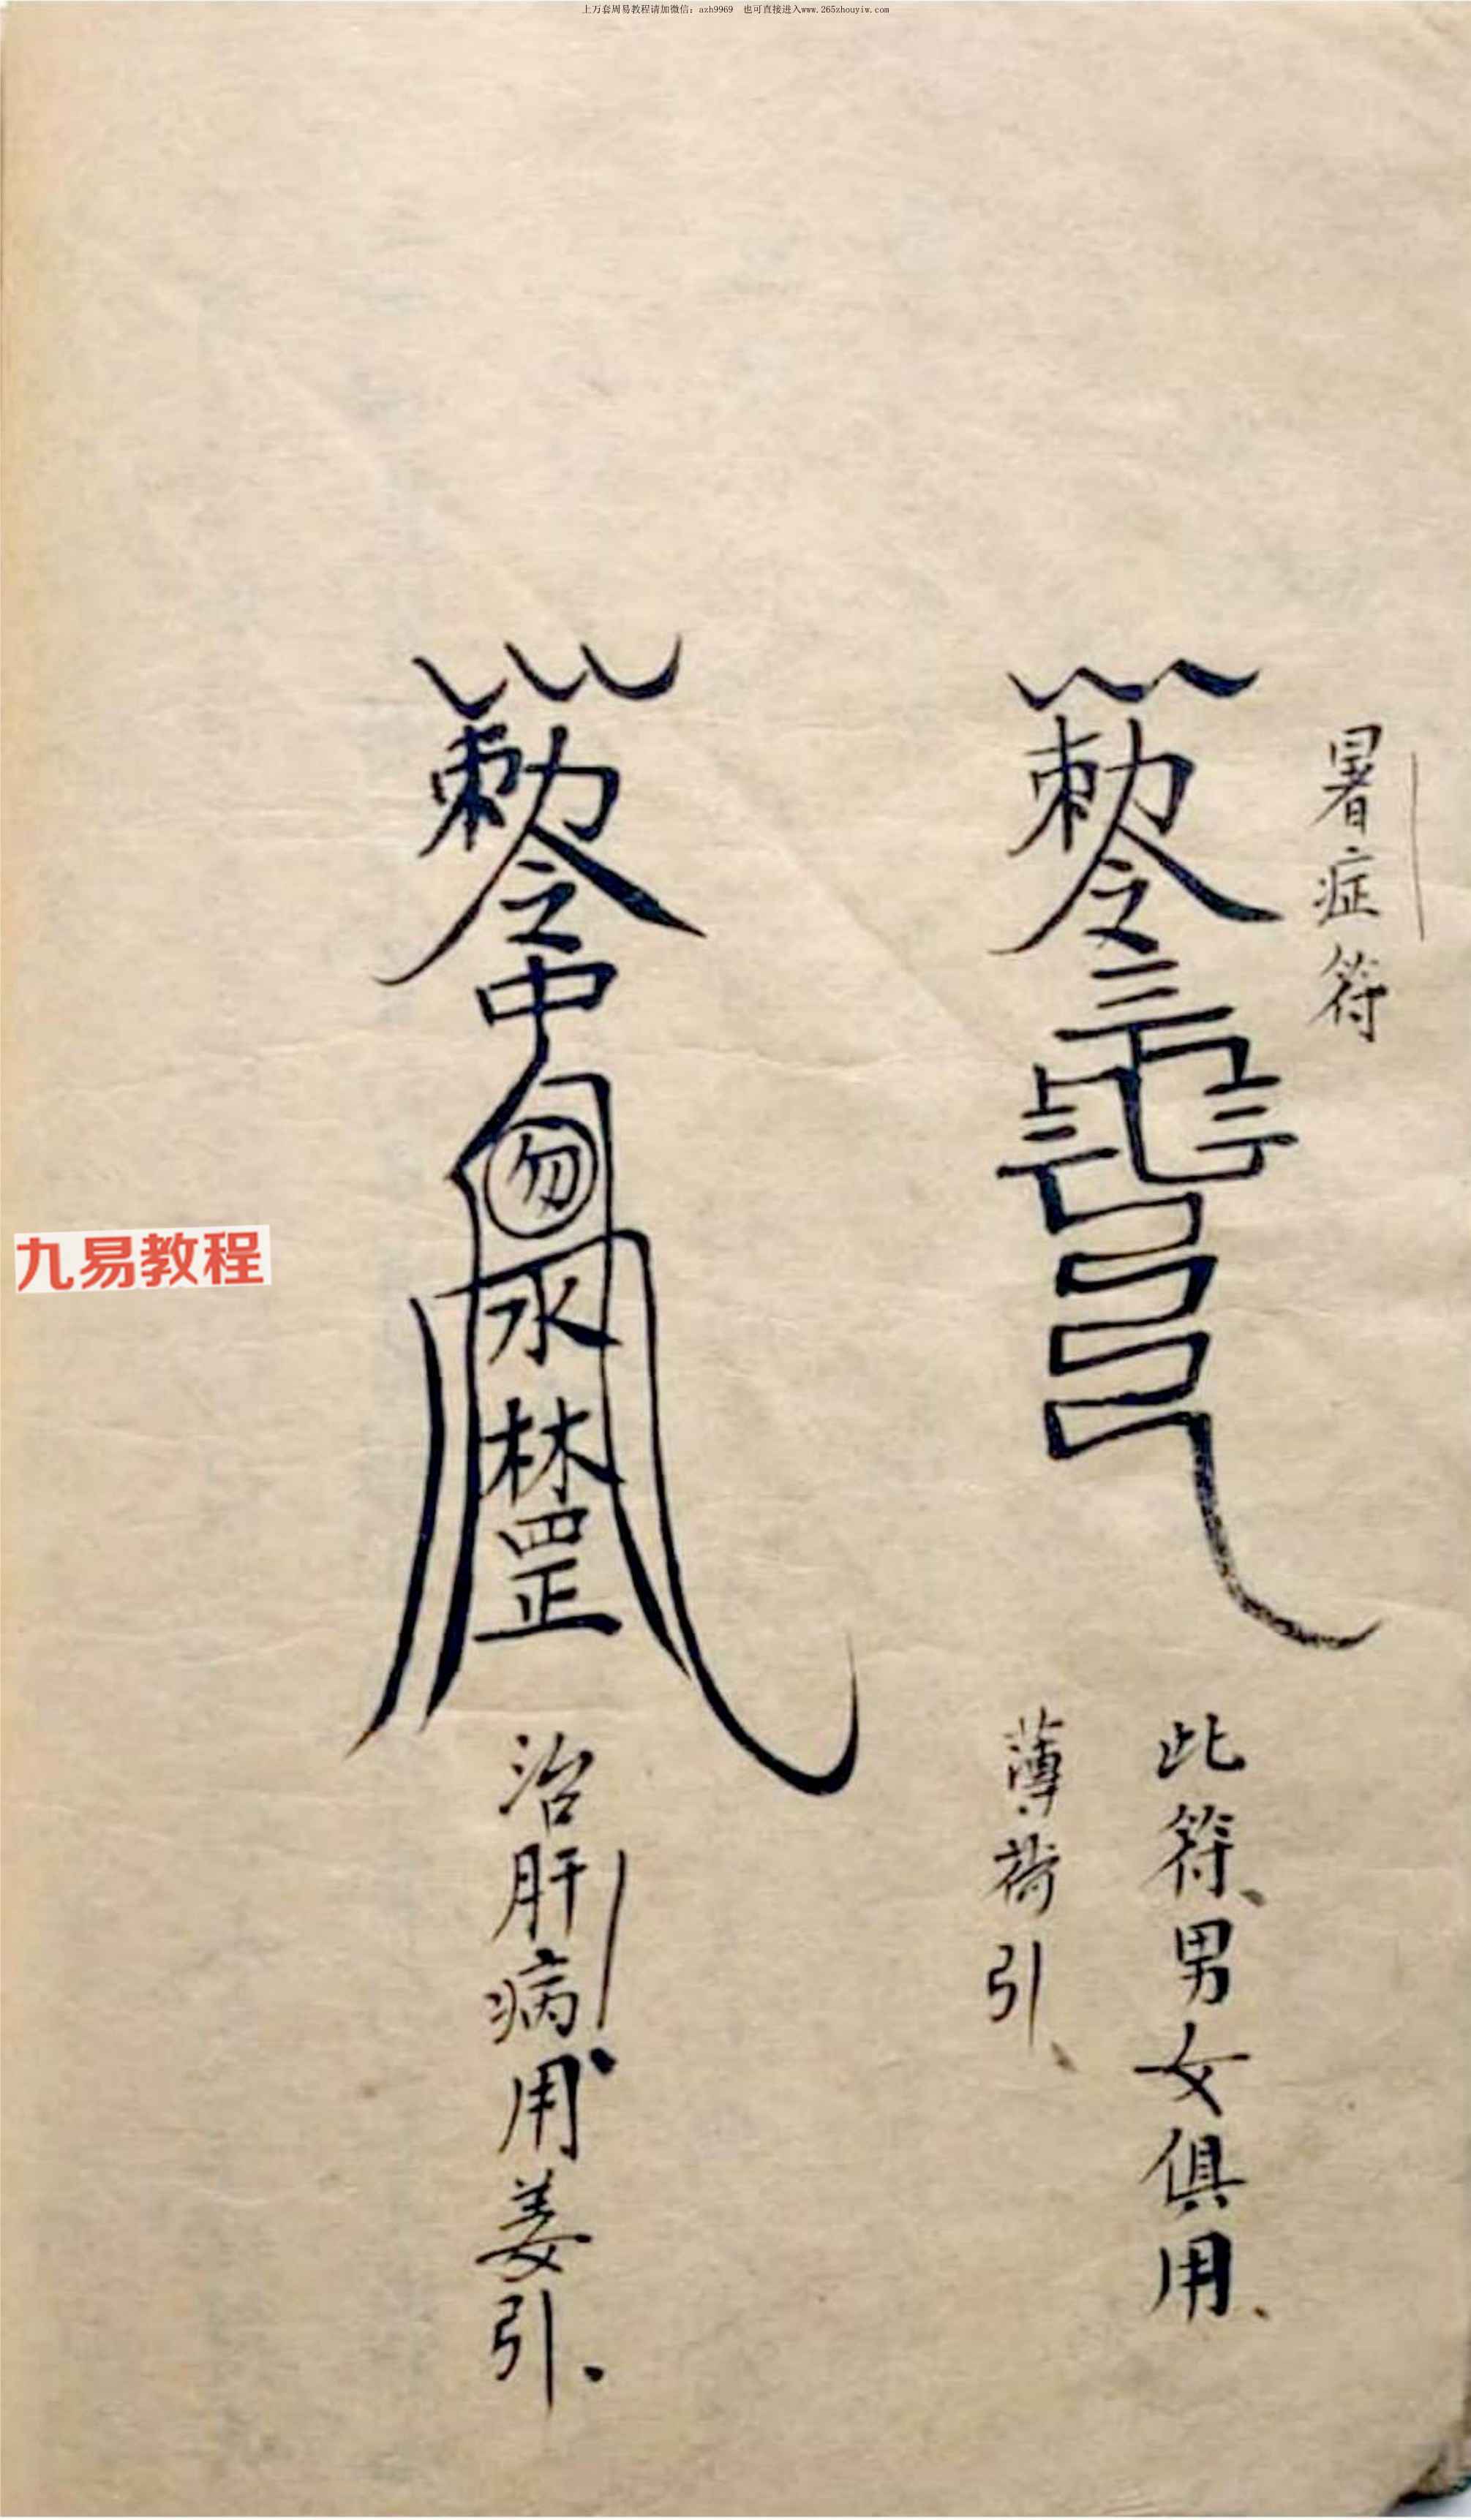 上万套周易教程请加微信：azh9969 也可直接进入www.265zhouyiw.com
暑症符
敕令
三
此符、男女俱用、
薄荷引、
敕令
中
勿
水
林
罡
治肝病、用姜引、
九易教程